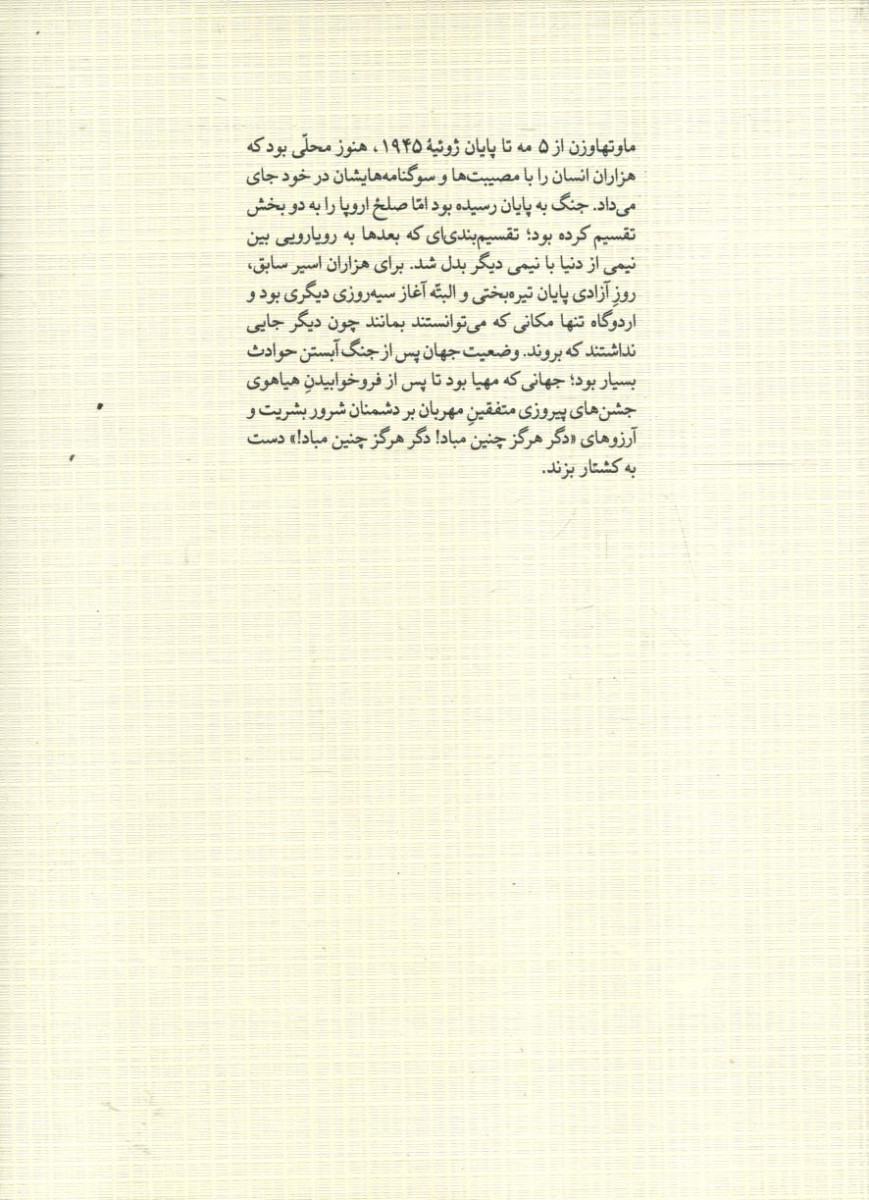 ماوتهاوزن از ۵ مه تا پایان ژوئیهٔ ۱۹۴۵، هنوز محلّی بود که
هزاران انسان را با مصیبت‌ها و سوگنامه‌هایشان در خود جای
می‌داد. جنگ به پایان رسیده بود امّا صلح اروپا را به دو بخش
تقسیم کرده بود؛ تقسیم‌بندی‌ای که بعدها به رویارویی بین
نیمی از دنیا با نیمی دیگر بدل شد. برای هزاران اسیر سابق،
روزِ آزادی پایان تیره‌بختی و البتّه آغاز سیه‌روزی دیگری بود و
اردوگاه تنها مکانی که می‌توانستند بمانند چون دیگر جایی
نداشتند که بروند. وضعیت جهان پس از جنگ آبستن حوادث
بسیار بود؛ جهانی که مهیا بود تا پس از فروخوابیدنِ هیاهوی
جشن‌های پیروزی متفقینِ مهربان بر دشمنان شرور بشریت و
آرزوهای «دگر هرگز چنین مباد! دگر هرگز چنین مباد!» دست
به کشتار بزند.